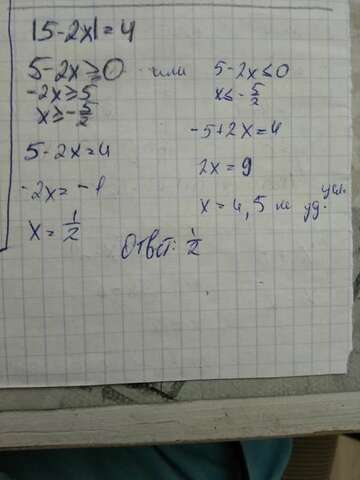 |5-2x|=4
5-2x≥0 или 5-2x≤0
-2x≥5 x≤-5/2
x≥-5/2 -5+2x=4
5-2x=4 2x=9
-2x=-1 x=4,5 не уд. усл.
x=1/2
Ответ: 1/2